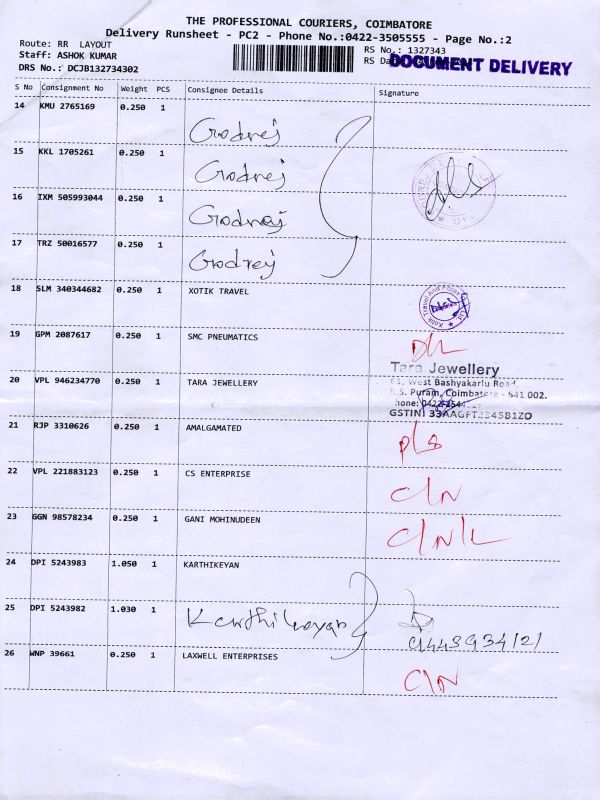 THE PROFESSIONAL COURIERS, COIMBATORE
Delivery Runsheet - PC2 - Phone No.:0422-3505555 - Page No.:2
Route: RR LAYOUT
Staff: ASHOK KUMAR
DRS No.: DCJB132734302
RS No.: 1327343
RS Da
DOCUMENT DELIVERY
S No Consignment No Weight PCS Consignee Details Signature
14 KMU 2765169 0.250 1 Godrej
15 KKL 1705261 0.250 1 Godrej
16 IXM 505993044 0.250 1 Godrej
17 TRZ 50016577 0.250 1 Godrej
18 SLM 340344682 0.250 1 XOTIK TRAVEL
19 GPM 2087617 0.250 1 SMC PNEUMATICS D/L
Tara Jewellery
61, West Bashyakarlu Road,
R.S. Puram, Coimbatore - 641 002.
GSTIN
20 VPL 946234770 0.250 1 TARA JEWELLERY
21 RJP 3310626 0.250 1 AMALGAMATED
22 VPL 221883123 0.250 1 CS ENTERPRISE C/N
23 GGN 98578234 0.250 1 GANI MOHINUDEEN C/N/L
24 DPI 5243983 1.050 1 KARTHIKEYAN
25 DPI 5243982 1.030 1 Karthikeyan
26 WNP 39661 0.250 1 LAXWELL ENTERPRISES C/N